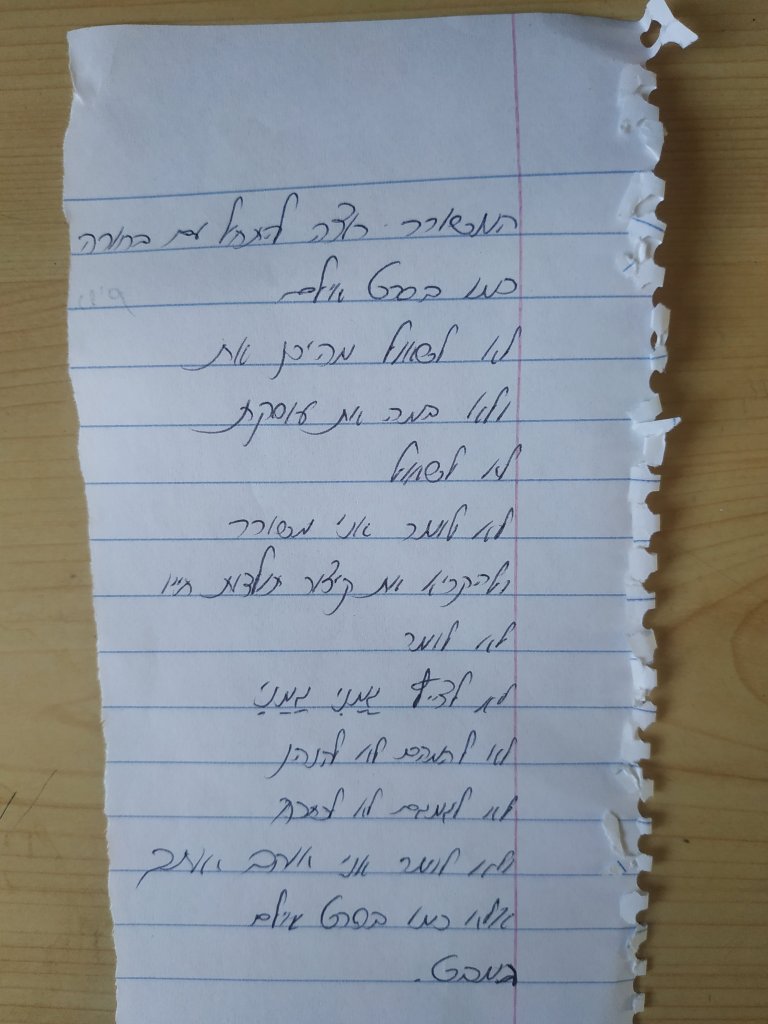 המשורר רוצה להתחיל עם בחורה
כמו בסרט אילם
לא לשאול מהיכן את
ולא במה את עוסקת
לא לשאול
לא לומר אני משורר
ולהקריא את קיצור תולדות חייו
לא לומר
לא לצייץ גַּמַנִי גַּמַנִי
לא להמהם לא להנהן
לא לגמגם לא לצרוח
ולא לומר אני אוהב אותך
אלא כמו בסרט אילם
במבט.